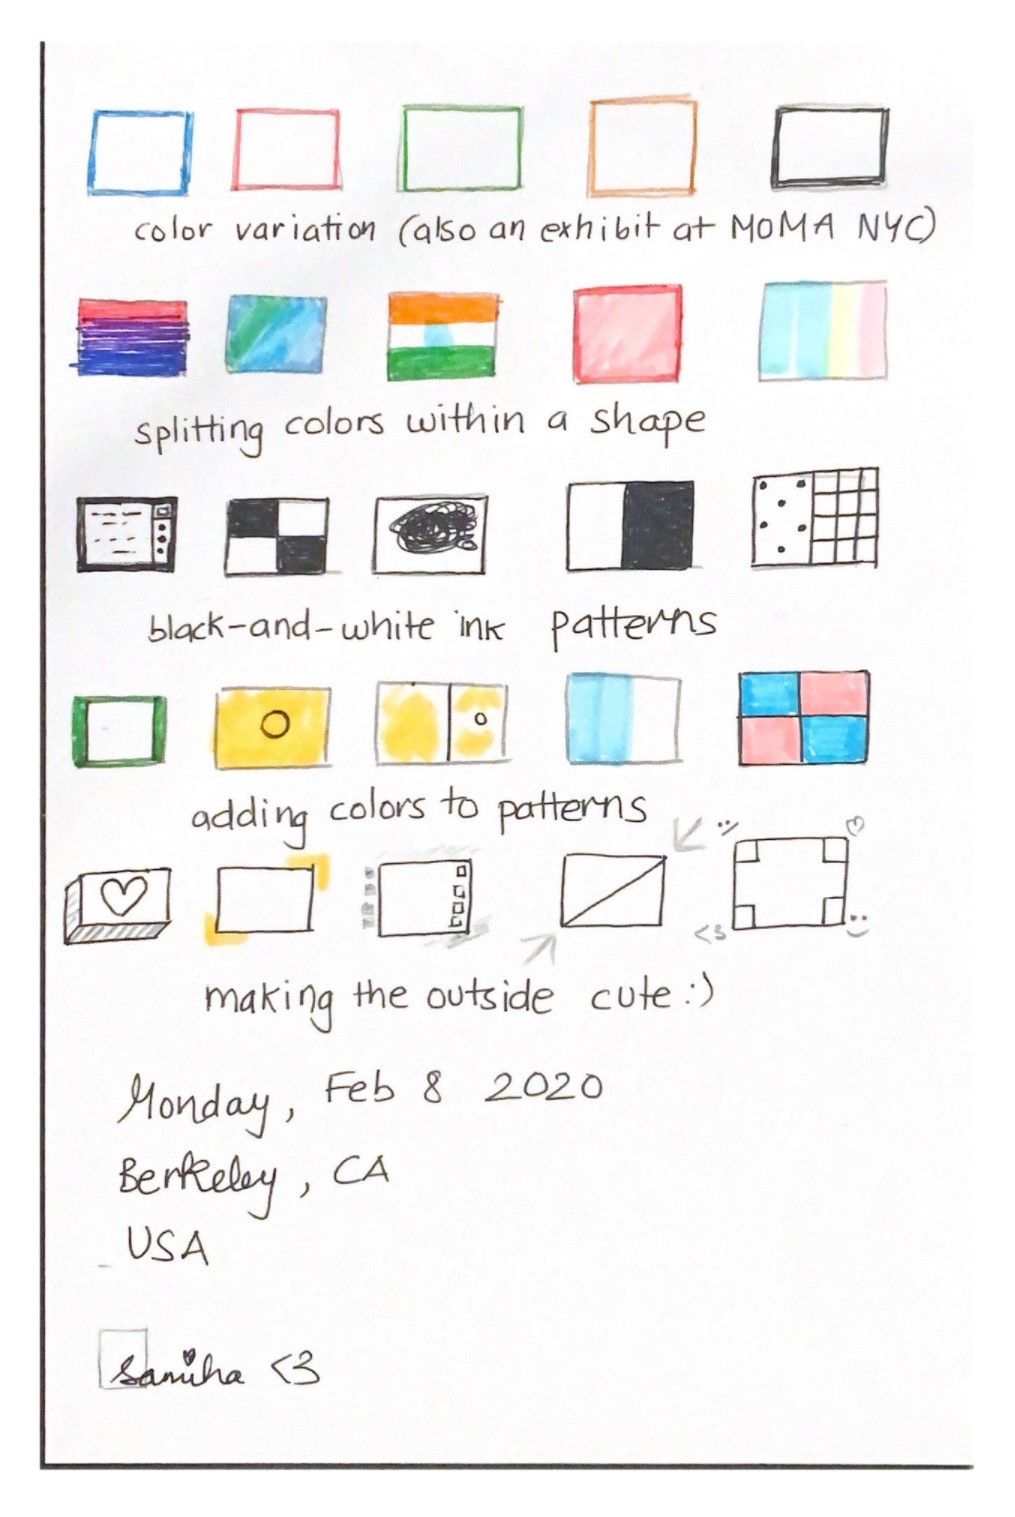 color variation (also an exhibit at MOMA NYC)
splitting colors within a shape
black-and-white ink patterns
adding colors to patterns
:)
<3
:)
making the outside cute :)
Monday, Feb 8 2020
Berkeley, CA
USA
Samiha <3